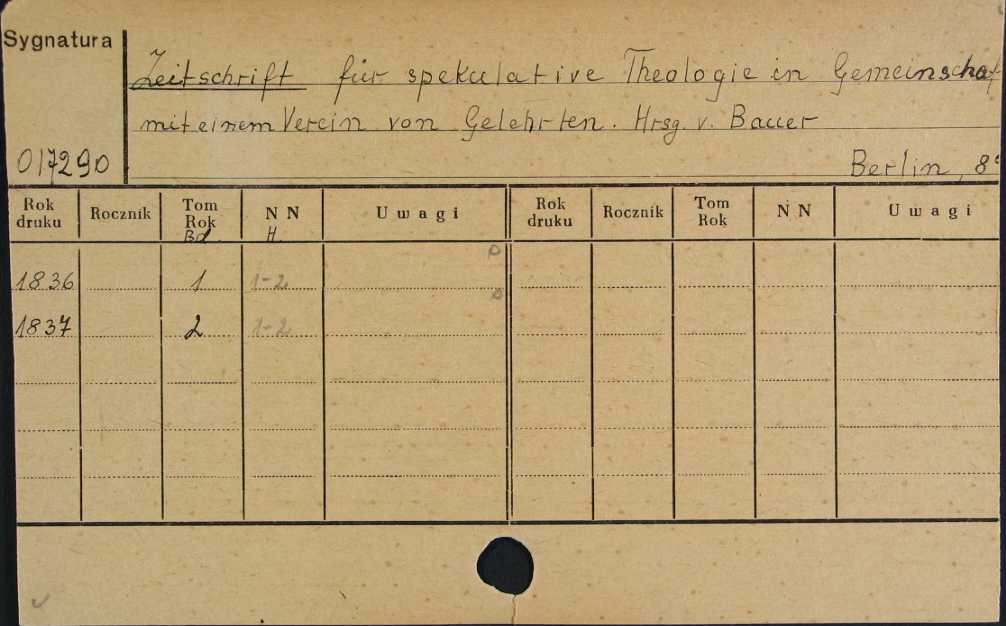 Sygnatura
Zeitschrift für spekulative Theologie in Gemeinschaft
mit einem Verein von Gelehrten. Hrsg. v. Bauer
017290 Berlin, 8°
Rok druku Rocznik Tom Rok N N Uwagi Rok druku Rocznik Tom Rok N N Uwagi
Bd. H.
1836 1 1-2
1837 2 1-2